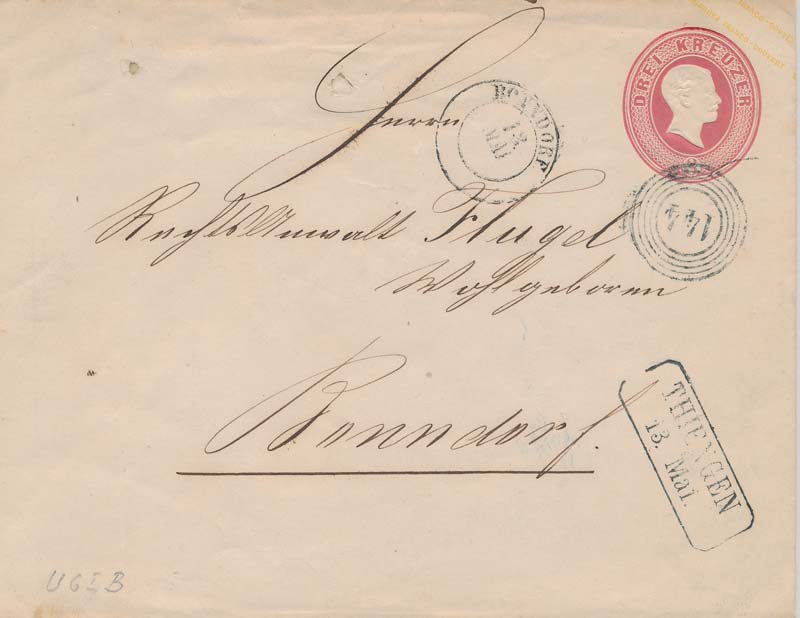 DREI KREUZER
Herrn
BONNDORF
13
MAI
RechtsAnwalt Flugel
144
Wohlgeboren
Bonndorf.
THIENGEN
13. Mai.
U 6 I B